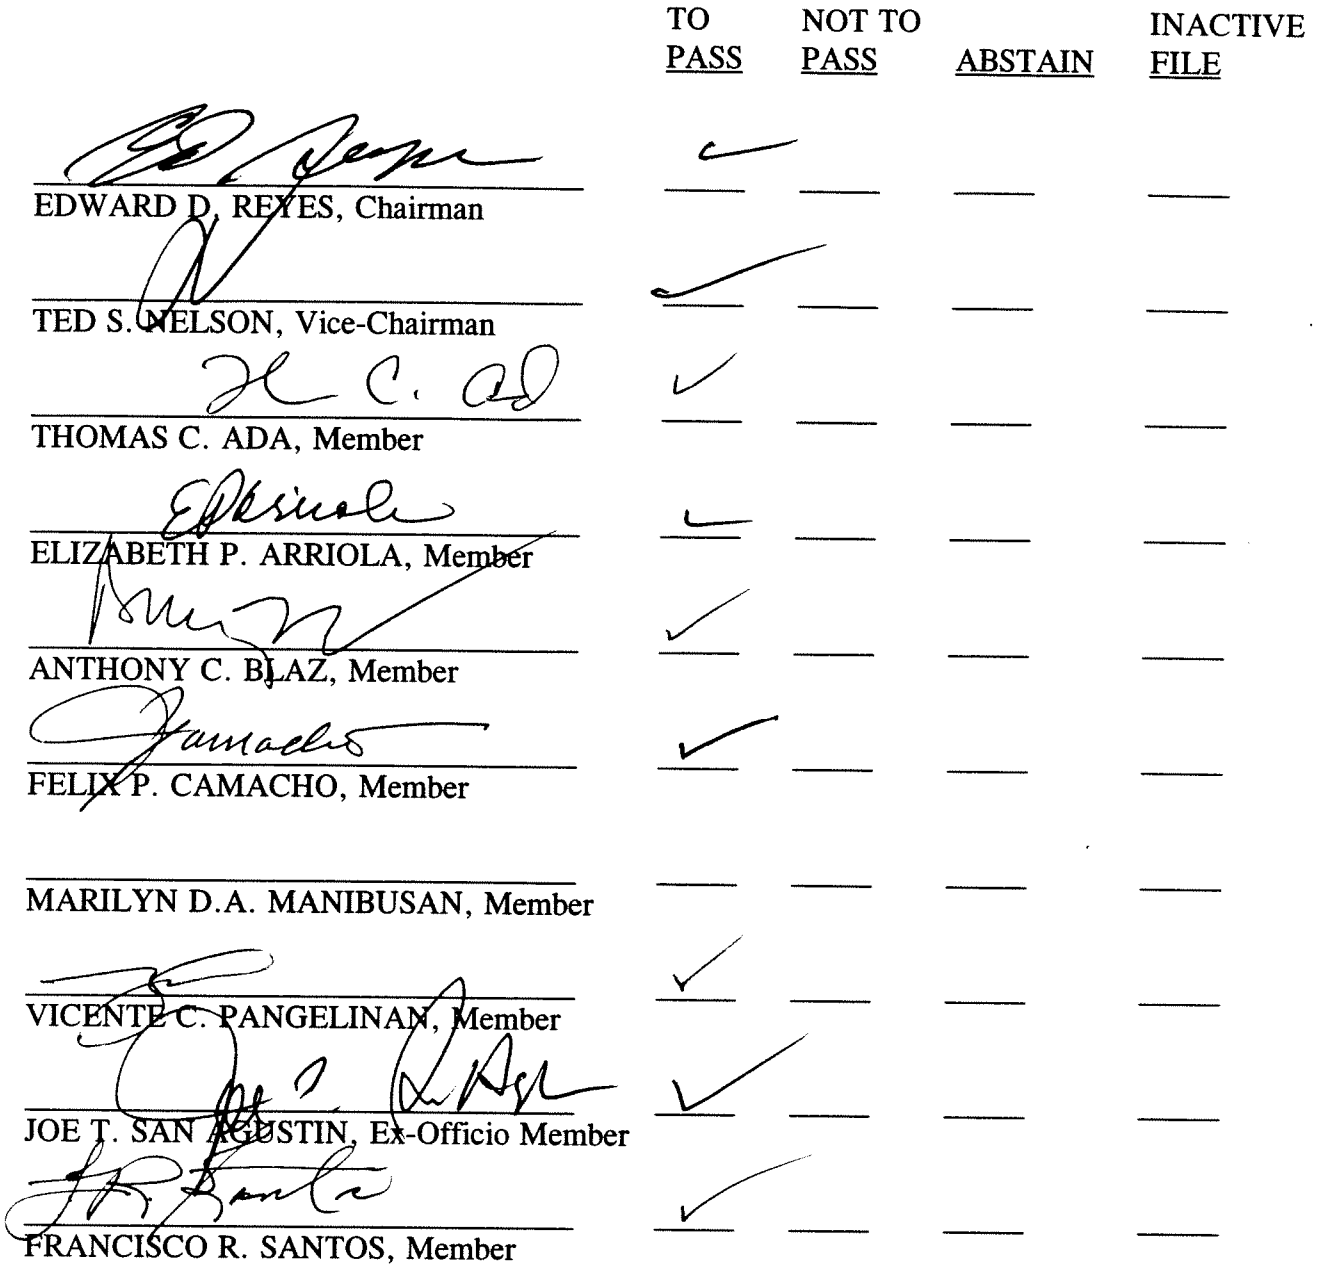 TO NOT TO INACTIVE
PASS PASS ABSTAIN FILE
EDWARD D. REYES, Chairman
TED S. NELSON, Vice-Chairman
THOMAS C. ADA, Member
ELIZABETH P. ARRIOLA, Member
ANTHONY C. BLAZ, Member
Camacho
FELIX P. CAMACHO, Member
MARILYN D.A. MANIBUSAN, Member
VICENTE C. PANGELINAN, Member
JOE T. SAN AGUSTIN, Ex-Officio Member
FRANCISCO R. SANTOS, Member